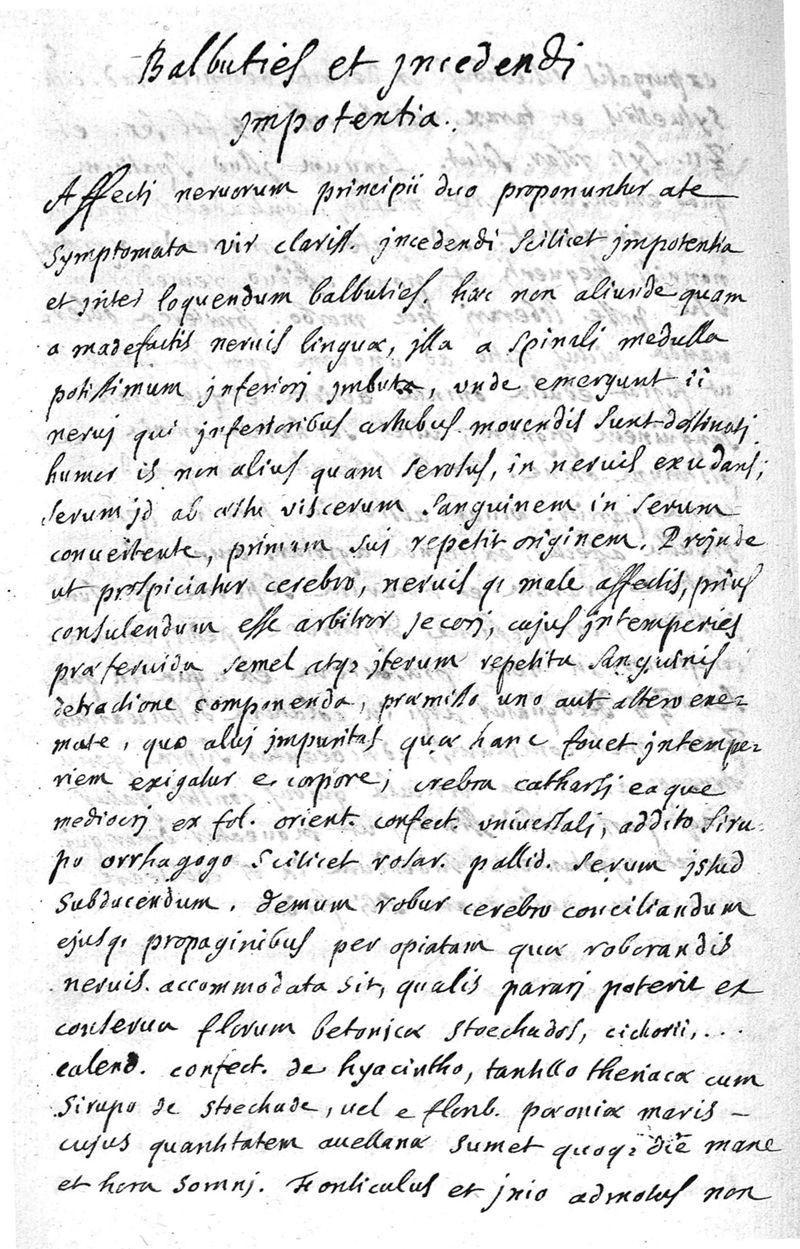 Balbuties et jncedendi
jmpotentia.
Affecti neruorum principii duo proponuntur a te
symptomata vir clariss. jncedendi scilicet jmpotentia
et jnter loquendum balbuties. hæc non aliunde quam
a madefactis neruis linguæ, jlla a spinali medulla
potissimum jnferiorj jmbuta, vnde emergunt ii
neruj qui jnferioribus artubus mouendis sunt destinatj.
humor is non alius quam serosus, in neruis exudans;
serum jd ab æstu viscerum sanguinem in serum
conuertente, primam sui repetit originem. Projnde
ut prospiciatur cerebro, neruis q; male affectis, prius
consulendum esse arbitror jecorj, cujus jntemperies
præferuida semel atq; jterum repetita sanguinis
detractione componenda, præmisso uno aut altero ene=
mate, quo aluj jmpuritas quæ hanc fouet jntempe=
riem exigatur e corpore; crebra catharsj eaque
mediocrj ex fol. orient. confect. vniuersali, addito siru=
po orrhagogo scilicet rosar. pallid. serum jstud
subducendum. demum robur cerebro conciliandum
ejusq; propaginibus per opiatam quæ roborandis
neruis accommodata sit, qualis pararj poterit ex
conserua florum betonjcæ stoechados, cichorii, ...
calend. confect. de hyacintho, tantillo theriacæ cum
sirupo de stoechade, vel e florib. pæoniæ maris –
cujus quantitatem auellanæ sumet quoq; die mane
et hora somnj. Fonticulus et jnio admotus non